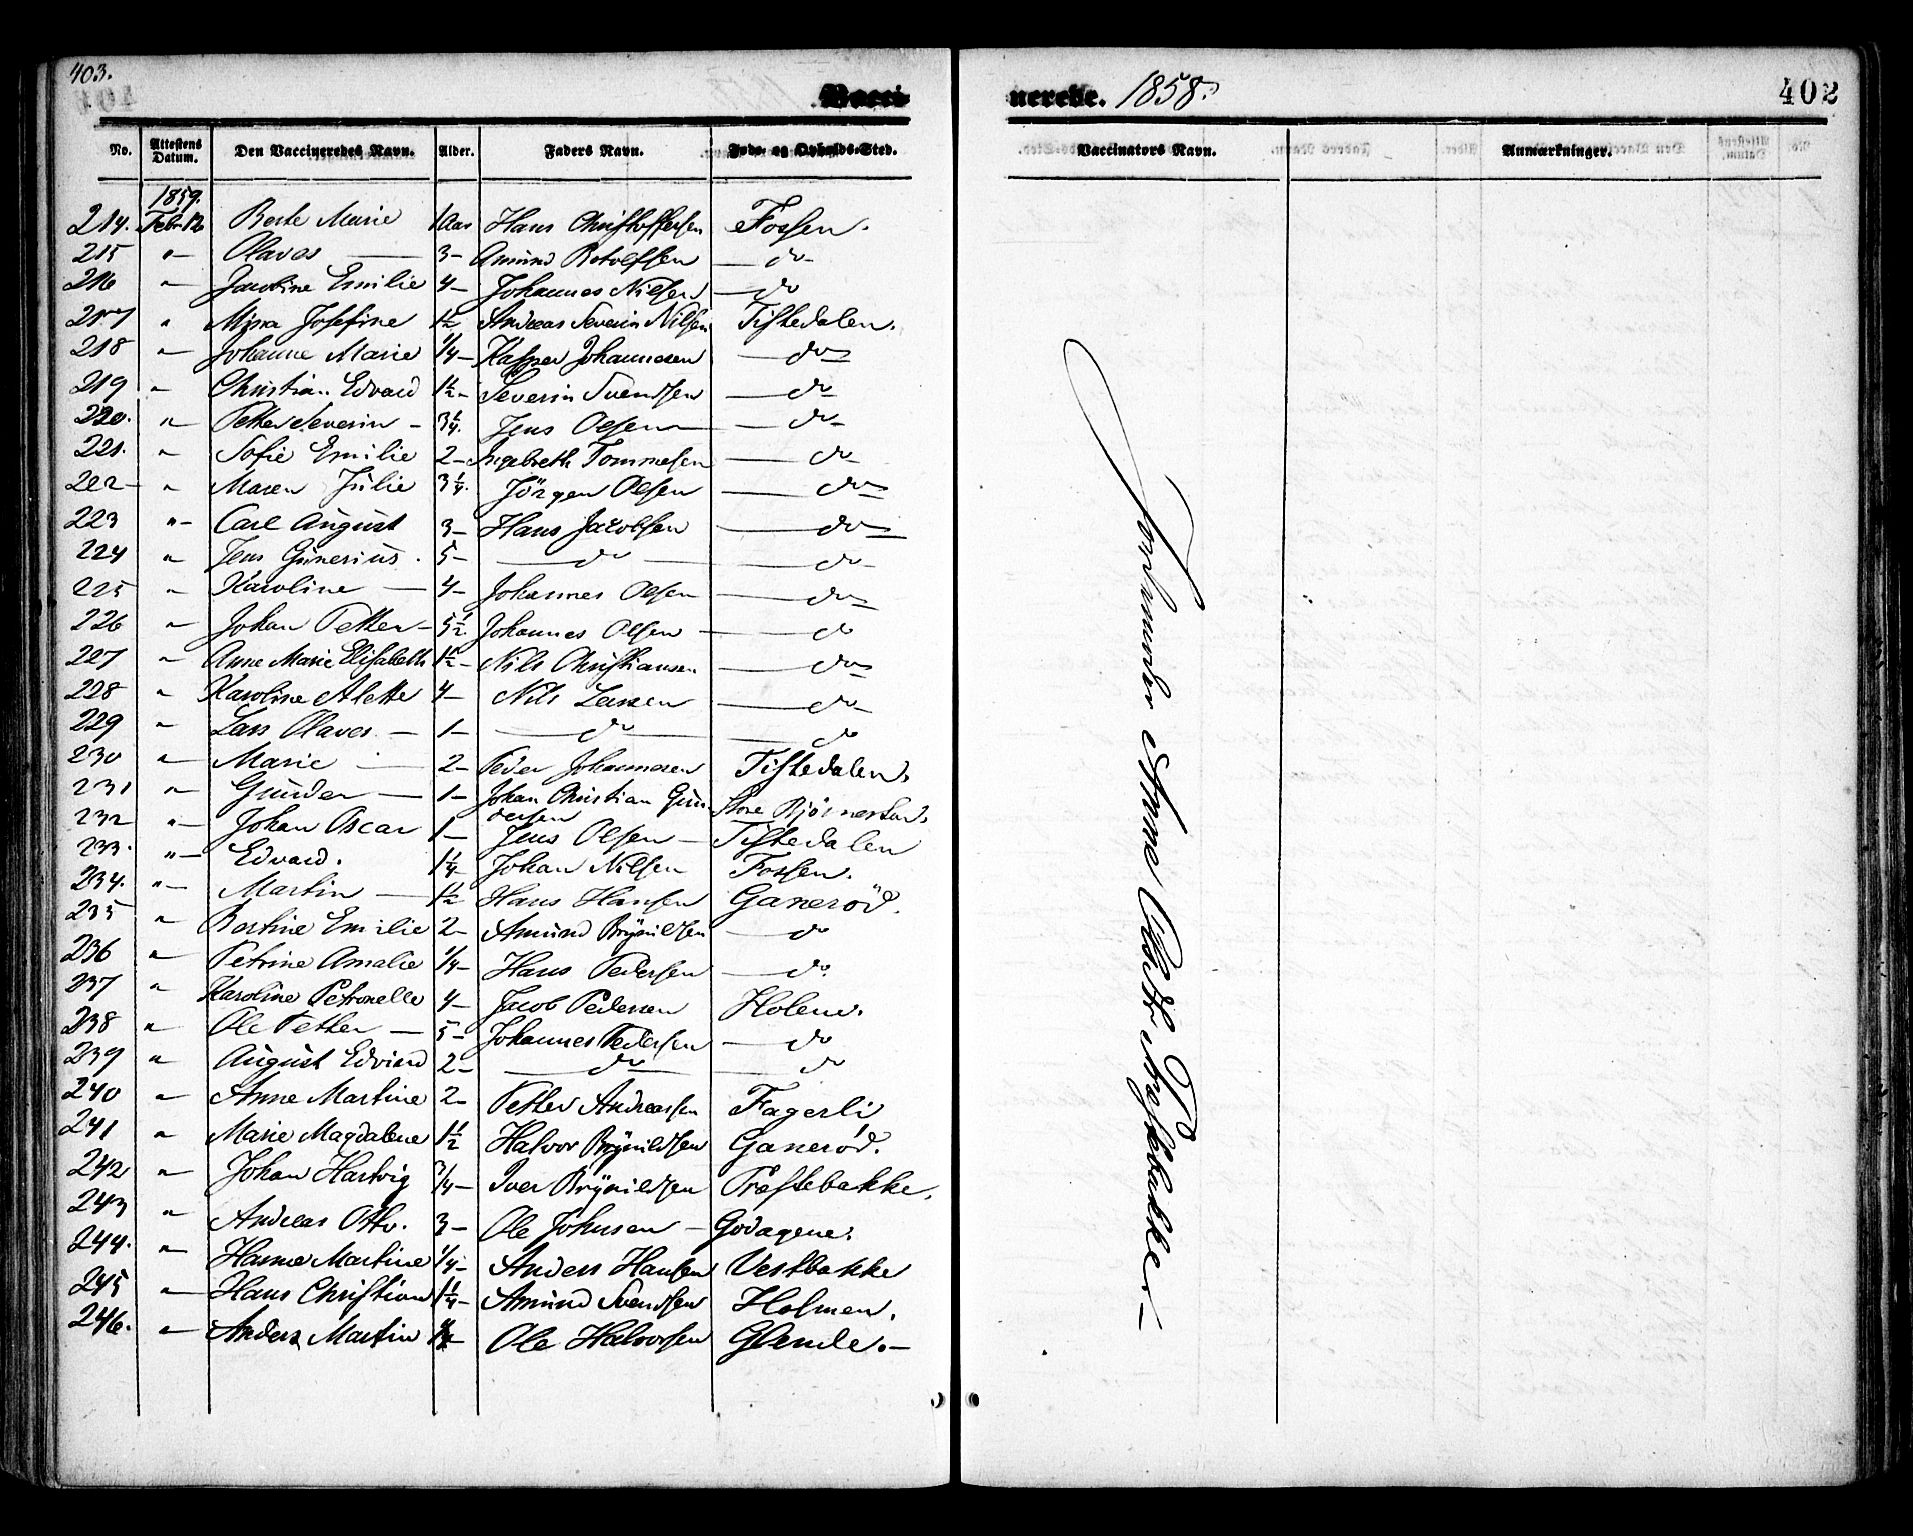 403.
Vacci
No. Attestens Datum. Den Vaccineredes Navn. Alder. Faders Navn. Føde- og Opholds-Sted.
1859.
214. Febr 12 Berte Marie 1 Aar Hans Christoffersen Fossen.
215 " — Olaves — 3 — Amünd Rotolfsen — do —
216 " — Jacobine Emilie 4 — Johannes Nilsen — do
217 " Mina Josefine 1½ Andreas Severin Nilsen Tistedalen.
218 " — Johanne Marie ¼ — Kasper Johannesen — do —
219 " — Christian Edvard 1½ — Severin Svendsen — do —
220. " — Petter Severin — 3¼. Jens Olsen — do —
221. " — Sofie Emilie 2 — Ingebreth Tommesen — do —
222 — " — Maren Jülie 3¼. Jörgen Olsen — do —
223 " — Carl Aügüst 3 — Hans Jacobsen — do —
224 " — Jens Günerius. 5 — — do — — do —
225 " — Karoline — 4 — Johannes Olsen — do —
226 " — Johan Petter — 5½ Johannes Olsen — do
227 " — Anne Marie Elisabeth 1½ — Nils Christiansen. — do —
228 " — Karoline Alette 4 — Nils Larsen — do —
229 " — Lars Olaves. — 1 — — do — — do
230 " — Marie — 2 — Peder Johannesen Tistedalen.
231 " — Günder — 1 — Johan Christian Gün- Store Bjørnestad.
dersen
232 " — Johan Oscar 1 — Jens Olsen — Tistedalen
233. " — Edvard. 1¼ Johan Nilsen Fossen.
234. " — Martin — 1½ Hans Hansen Ganeröd.
235 " — Bertine Emilie 2 — Amünd Brÿnildsen — do
236 " — Petrine Amalie ¼ — Hans Pedersen — do.
237 " — Karoline Petronelle 4 — Jacob Pedersen Holene.
238 " — Ole Petter — 5 — Johannes Pedersen — do
239 " — Aügüst Edvard 2 — — do — — do
240 " — Anne Martine 2 — Petter Andreassen Fagerli
241 " — Marie Magdalene 1½ Halvor Brÿnildsen Ganeröd.
242 " — Johan Hartvig ¾ — Iver Brÿnildsen Præstebakke.
243 " — Andreas Otto. 3 — Ole Johnsen — Godagene.
244. " — Hanne Martine ¼ — Anders Hansen Vestbakke
245 " — Hans Christian 1¼ — Amünd Svendsen Holmen.
246. " — Anders Martin Ole Halvorsen Glende. —
nerede. 1858.
402
Vaccinators Navn. Anmærkninger.
Jordemoder Anne Præstebakke —